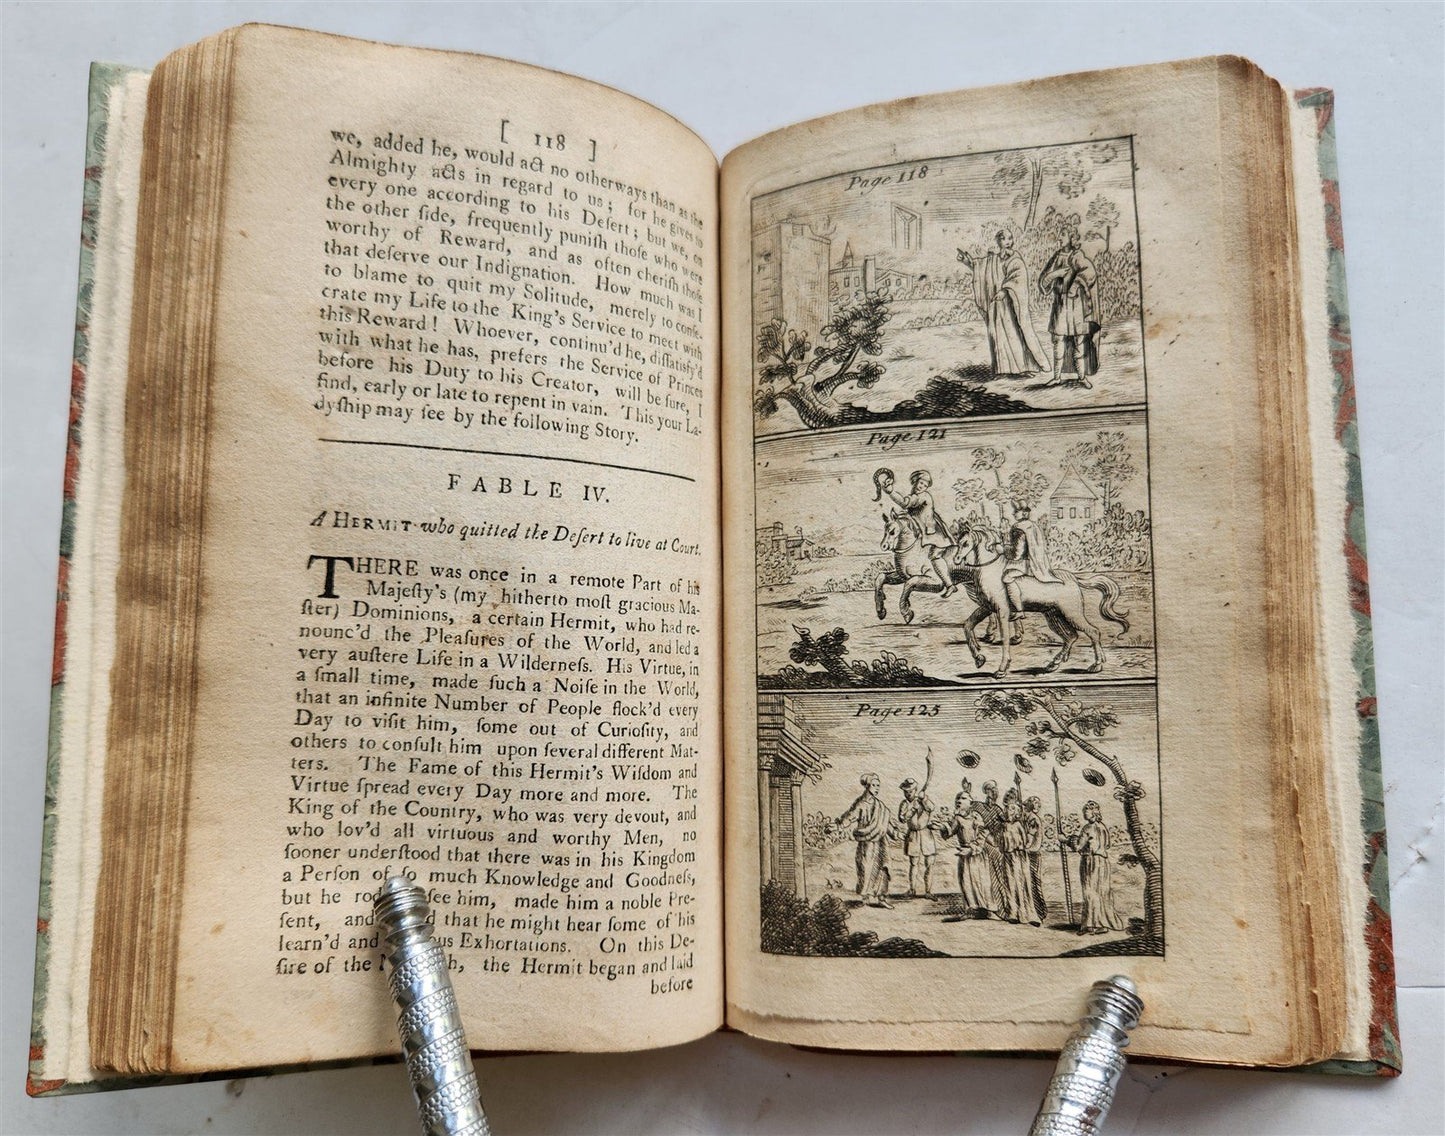 [ 118 ]
we, added he, would act no otherways than as the
Almighty acts in regard to us; for he gives to
every one according to his Deſert; but we, on
the other ſide, frequently puniſh thoſe who were
worthy of Reward, and as often cheriſh thoſe
that deſerve our Indignation. How much was I
to blame to quit my Solitude, merely to conſe-
crate my Life to the King's Service to meet with
this Reward! Whoever, continu'd he, diſſatisfy'd
with what he has, prefers the Service of Princes
before his Duty to his Creator, will be ſure, I
find, early or late to repent in vain. This your La-
dyſhip may ſee by the following Story.
FABLE IV.
A HERMIT who quitted the Deſert to live at Court.
THERE was once in a remote Part of his
Majeſty's (my hitherto moſt gracious Ma-
ſter) Dominions, a certain Hermit, who had re-
nounc'd the Pleaſures of the World, and led a
very auſtere Life in a Wilderneſs. His Virtue, in
a ſmall time, made ſuch a Noiſe in the World,
that an infinite Number of People flock'd every
Day to viſit him, ſome out of Curioſity, and
others to conſult him upon ſeveral different Mat-
ters. The Fame of this Hermit's Wiſdom and
Virtue ſpread every Day more and more. The
King of the Country, who was very devout, and
who lov'd all virtuous and worthy Men, no
ſooner underſtood that there was in his Kingdom
a Perſon of ſo much Knowledge and Goodneſs,
but he ſee him, made him a noble Pre-
ſent, and that he might hear ſome of his
learn'd and Exhortations. On this De-
ſire of the the Hermit began and laid
before
Page 118
Page 121
Page 125